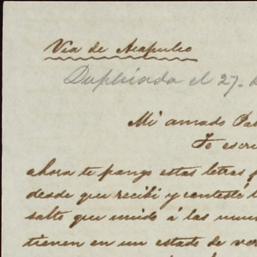 Via de Acapulco
Duplicada el 27.
Mi amado Pa
Te escri
ahora te pongo estas letras
desde que recibi y contesté
salto que unido á las
tienen en un estado de